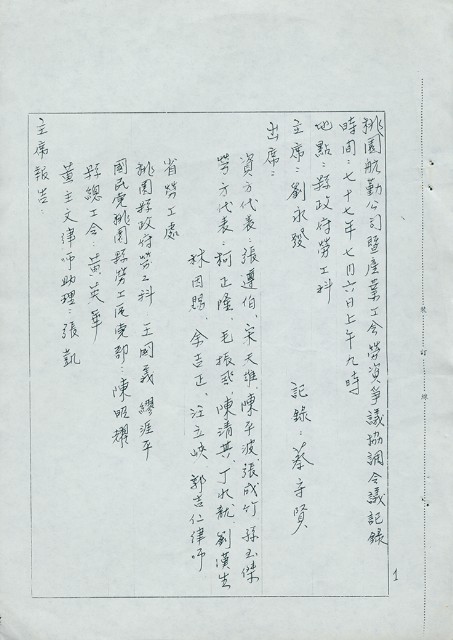 桃園航勤公司暨產業工會勞資爭議協調會議記錄
時間：七十七年七月六日上午九時
地點：縣政府勞工科
主席：劉永發 記錄：蔡守賢
出席：
資方代表：張遵伯、宋天維、陳平波、張成竹、孫玉傑
勞方代表：柯正隆、毛振飛、陳清其、丁水龍、劉漢生
林因賜、余吉正、汪立峽、郭吉仁律师
省勞工處
桃園縣政府勞工科 王國義 繆涯平
國民党桃園縣勞工區党部：陳照耀
縣總工会 黃英華
黃主文律师助理：張凱
主席報告：
裝訂線
1